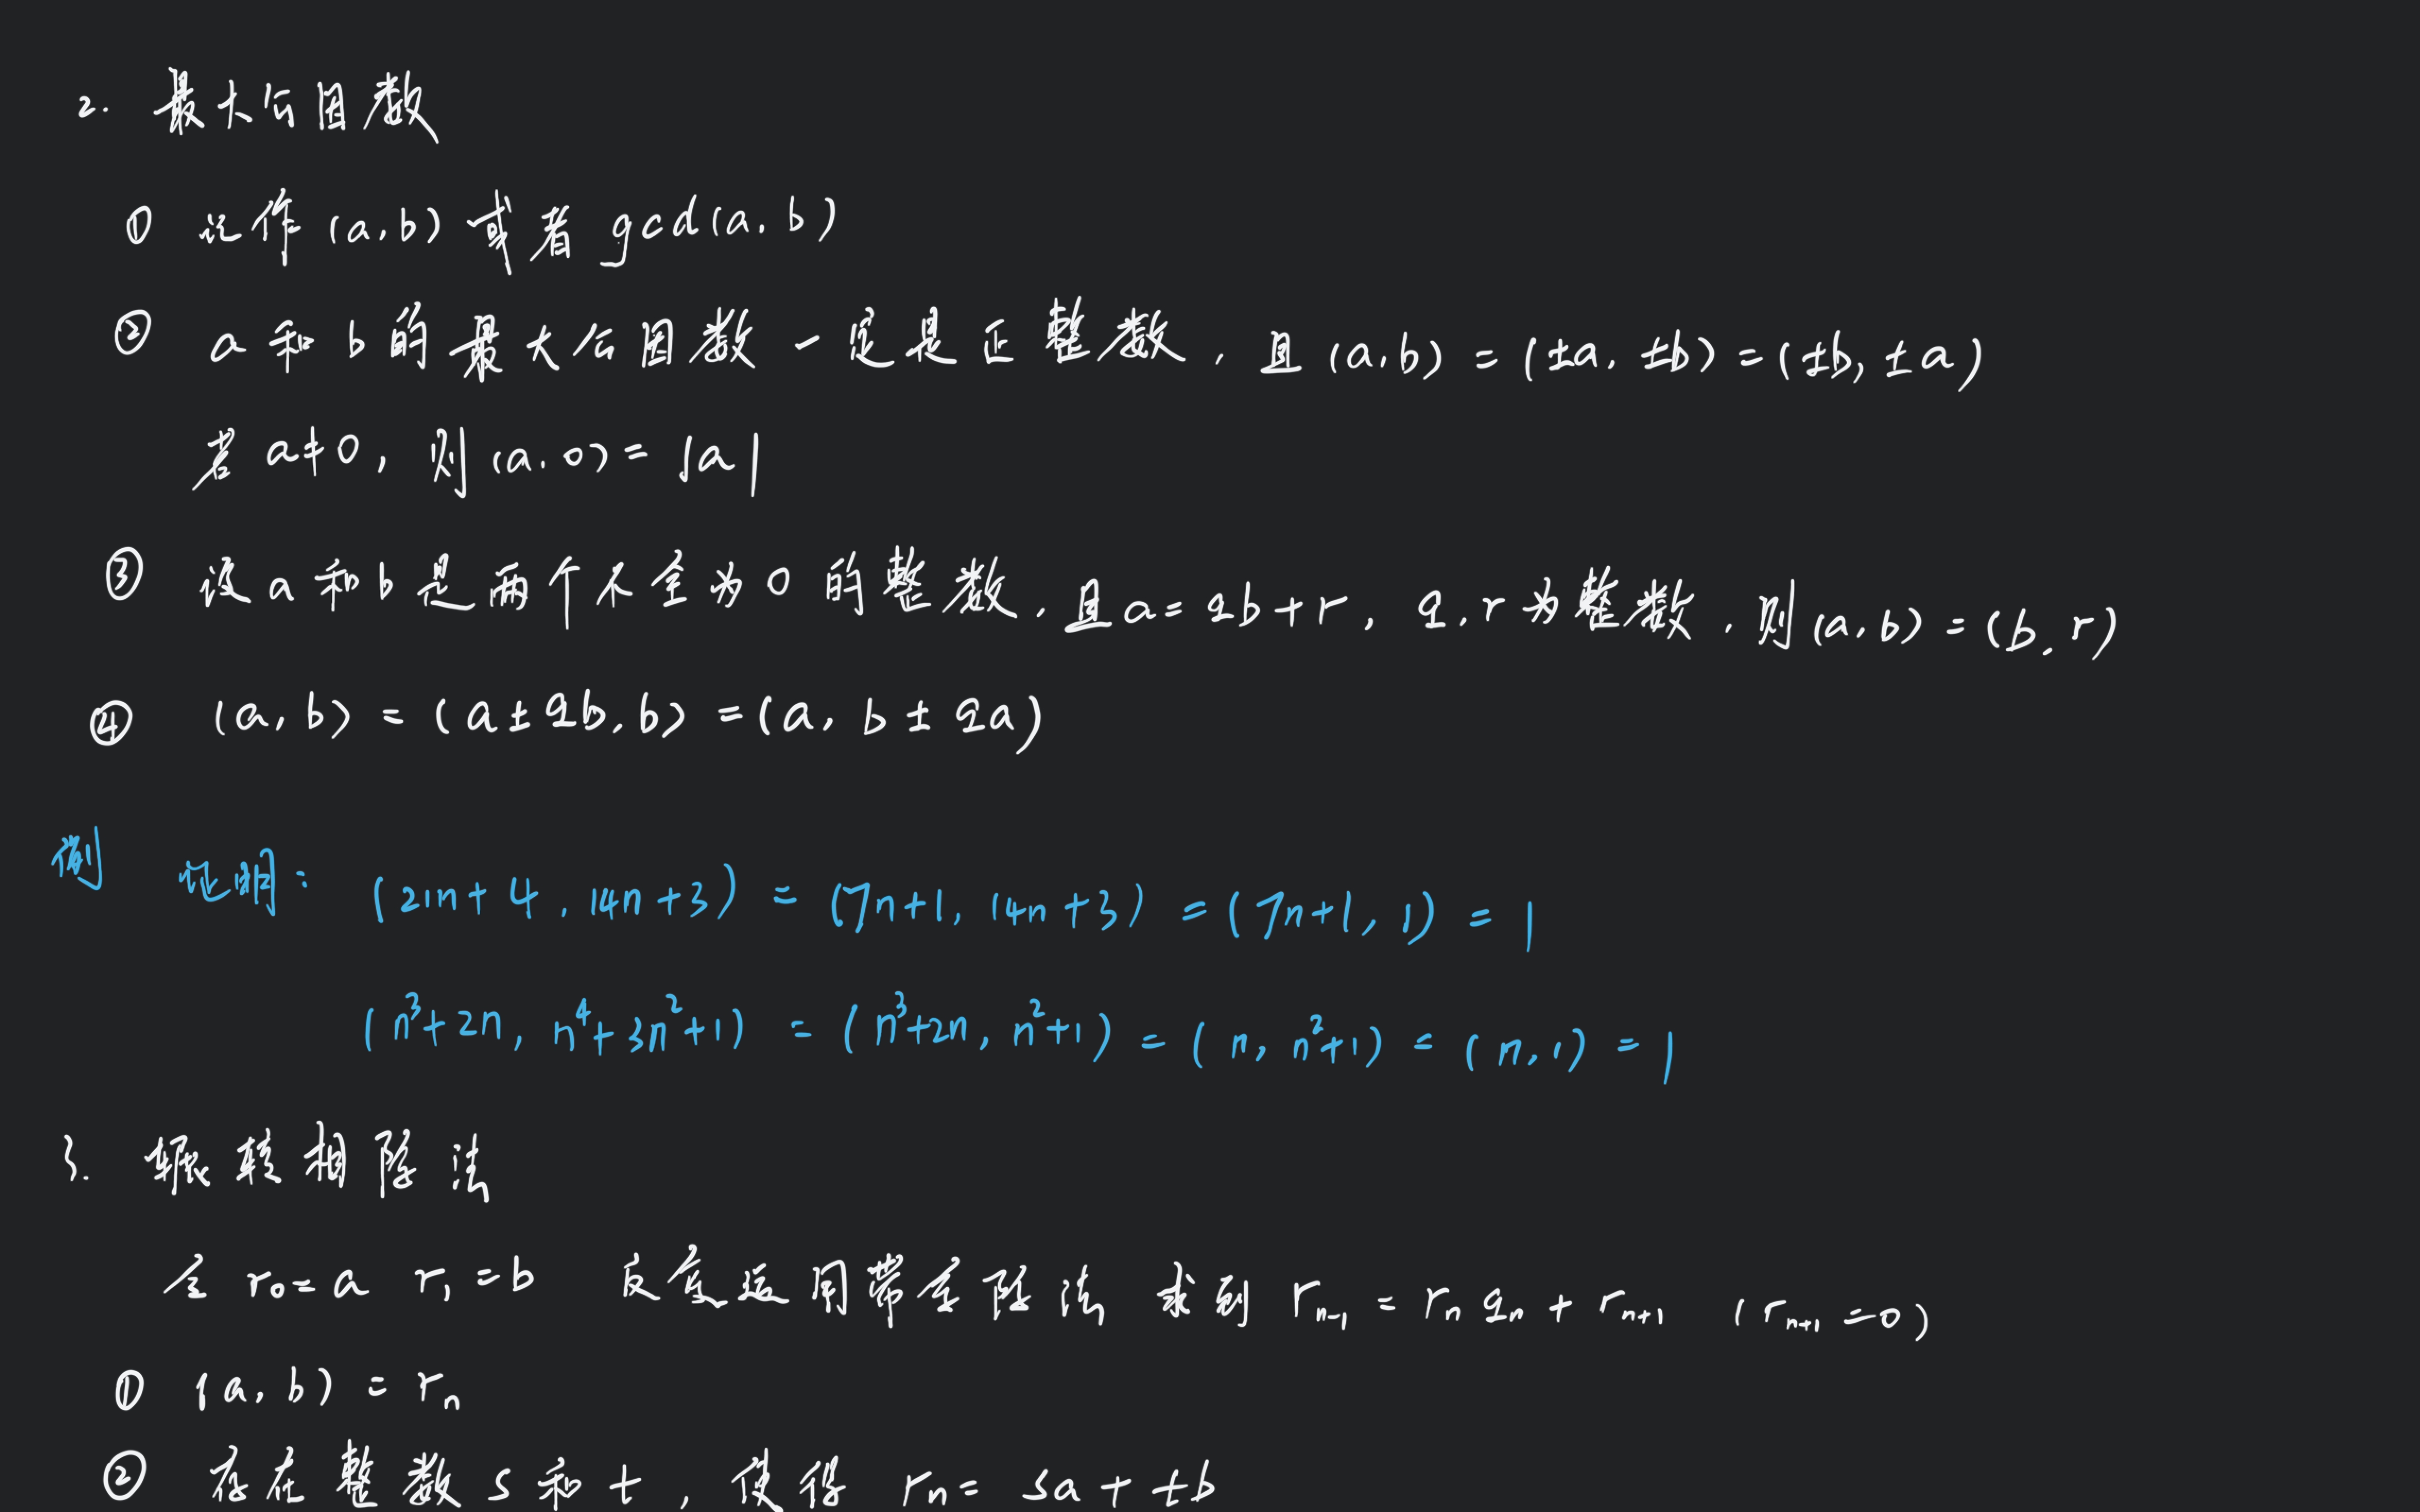 2. 最大公因数
① 记作(a,b)或者gcd(a,b)
② a和b的最大公因数一定是正整数,且(a,b)=(±a,±b)=(±b,±a)
若a≠0,则(a,0)=|a|
③ 设a和b是两个不全为0的整数,且a=qb+r,q,r为整数,则(a,b)=(b,r)
④ (a,b)=(a±qb,b)=(a,b±qa)
例 证明:(21n+4,14n+3)=(7n+1,14n+3)=(7n+1,1)=1
(n³+2n,n⁴+3n²+1)=(n³+2n,n²+1)=(n,n²+1)=(n,1)=1
3. 辗转相除法
令 r₀=a r₁=b 反复运用带余除法 求到 rₙ₋₁=rₙqₙ+rₙ₊₁ (rₙ₊₁=0)
① (a,b)=rₙ
② 存在整数s和t,使得 rₙ=sa+tb